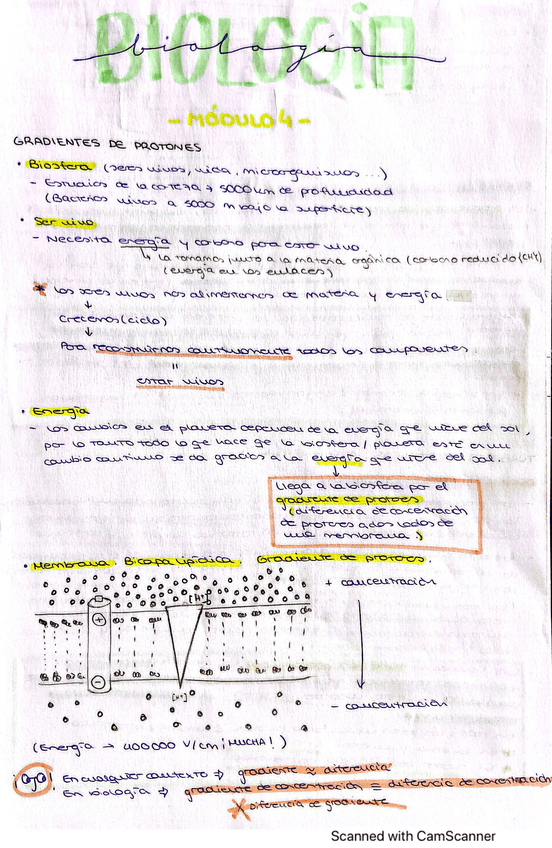 BIOLOGÍA
biología
- MÓDULO 4 -
GRADIENTES DE PROTONES
· Biosfera (seres vivos, vida, microorganismos...)
- Estudios de la corteza → 5000 km de profundidad
(Bacterias vivas a 5000 m bajo la superficie)
· Ser vivo
- Necesita energía y carbono para estar vivo.
↳ la tomamos junto a la materia orgánica (carbono reducido (CH4)
(energía en los enlaces)
* Los seres vivos nos alimentamos de materia y energía
↓
Crecemos (ciclo)
↓
Para reconstruirnos continuamente todos los componentes.
"
estar vivos
· Energía
- Los cambios en el planeta dependen de la energía qe viene del sol,
por lo tanto todo lo qe hace qe la biosfera / planeta esté en un
cambio continuo se da gracias a la energía qe viene del sol.
↓
llega a la biosfera por el
gradiente de protones
(diferencia de concentración
de protones a dos lados de
una membrana.)
· Membrana Bicapa lipídica Gradiente de protones.
[H+]
+ concentración
+
-
[H+]
- concentración
(Energía → 400000 V/cm ¡MUCHA!)
OJO! En cualquier contexto ⇒ gradiente ≈ diferencia
En biología ⇒ gradiente de concentración ≡ diferencia de concentración
X Diferencia de gradiente
Scanned with CamScanner